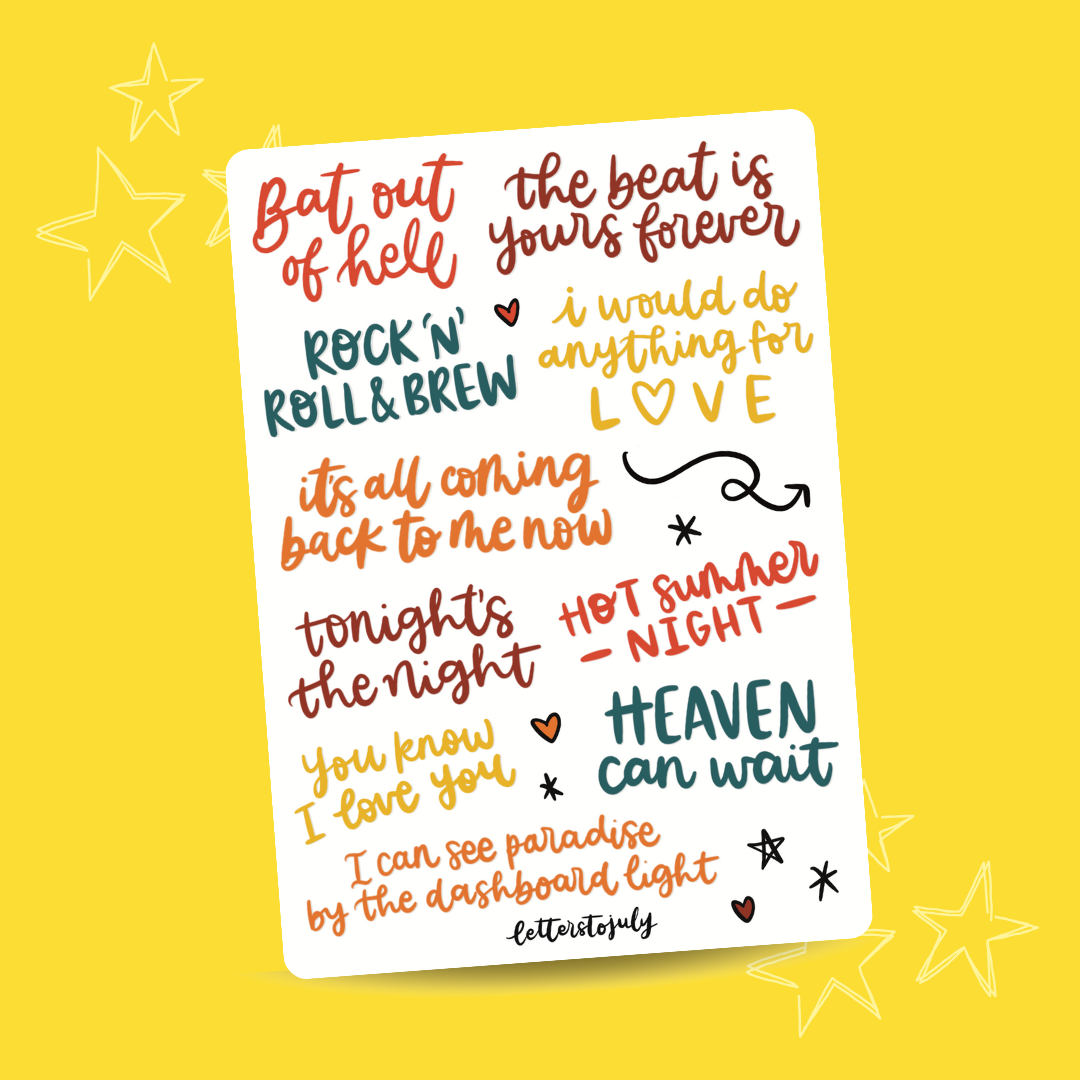 Bat out
of hell
the beat is
yours forever
ROCK 'N'
ROLL & BREW
i would do
anything for
L♡VE
it's all coming
back to me now
tonight's
the night
HOT summer
— NIGHT —
You know
I love you
HEAVEN
can wait
I can see paradise
by the dashboard light
letterstojuly